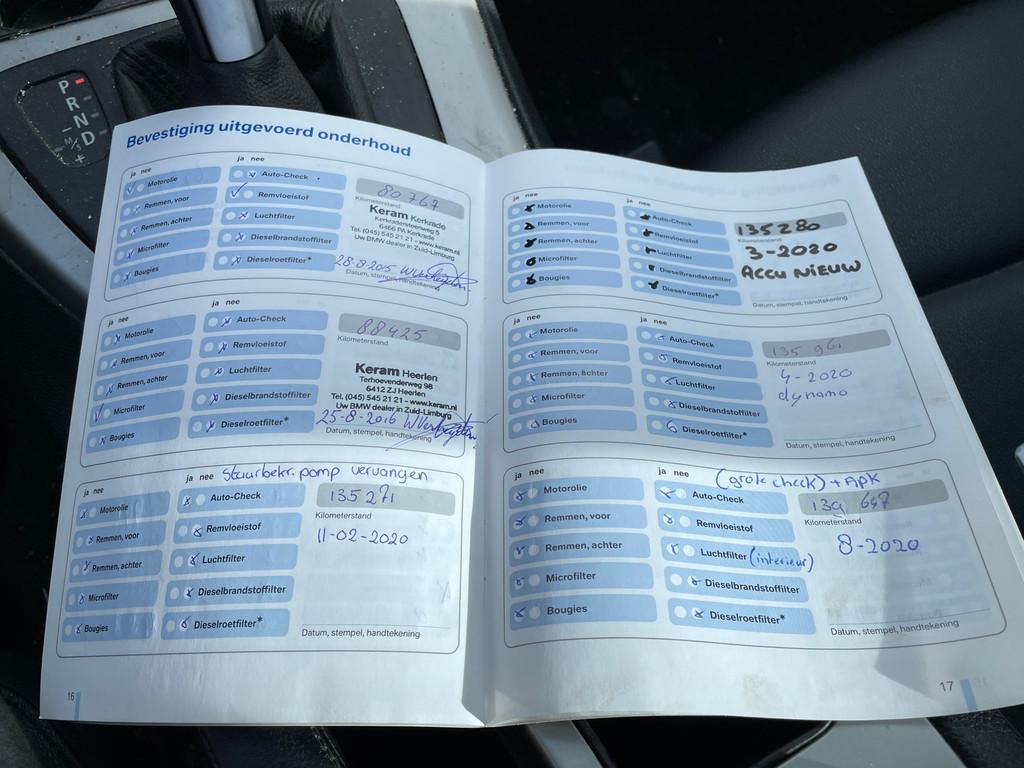 P
R
N
D
M/S
+
Bevestiging uitgevoerd onderhoud
ja nee
ja nee
Motorolie
Auto-Check
Remmen, voor
Remvloeistof
Remmen, achter
Luchtfilter
Microfilter
Dieselbrandstoffilter
Bougies
Dieselroetfilter*
80767
Keram Kerkrade
Kerkradersteenweg 5
6466 PA Kerkrade
Tel. (045) 545 21 21 - www.keram.nl
Uw BMW dealer in Zuid-Limburg
28-8-2015
Datum, stempel, handtekening
ja nee
ja nee
Motorolie
Auto-Check
Remmen, voor
Remvloeistof
Remmen, achter
Luchtfilter
Microfilter
Dieselbrandstoffilter
Bougies
Dieselroetfilter*
88425
Kilometerstand
Keram Heerlen
Terhoevenderweg 98
6412 ZJ Heerlen
Tel. (045) 545 21 21 - www.keram.nl
Uw BMW dealer in Zuid-Limburg
25-8-2016
Datum, stempel, handtekening
ja nee
ja nee
Stuurbekr. pomp vervangen
Motorolie
Auto-Check
Remmen, voor
Remvloeistof
Remmen, achter
Luchtfilter
Microfilter
Dieselbrandstoffilter
Bougies
Dieselroetfilter*
135271
Kilometerstand
11-02-2020
Datum, stempel, handtekening
16
ja nee
ja nee
Motorolie
Auto-Check
Remmen, voor
Remvloeistof
Remmen, achter
Luchtfilter
Microfilter
Dieselbrandstoffilter
Bougies
Dieselroetfilter*
135280
Kilometerstand
3-2020
ACCU NIEUW
Datum, stempel, handtekening
ja nee
ja nee
Motorolie
Auto-Check
Remmen, voor
Remvloeistof
Remmen, achter
Luchtfilter
Microfilter
Dieselbrandstoffilter
Bougies
Dieselroetfilter*
135 961
Kilometerstand
4-2020
dynamo
Datum, stempel, handtekening
ja nee
ja nee
(grote check) + APK
Motorolie
Auto-Check
Remmen, voor
Remvloeistof
Remmen, achter
Luchtfilter (interieur)
Microfilter
Dieselbrandstoffilter
Bougies
Dieselroetfilter*
139 647
Kilometerstand
8-2020
Datum, stempel, handtekening
17